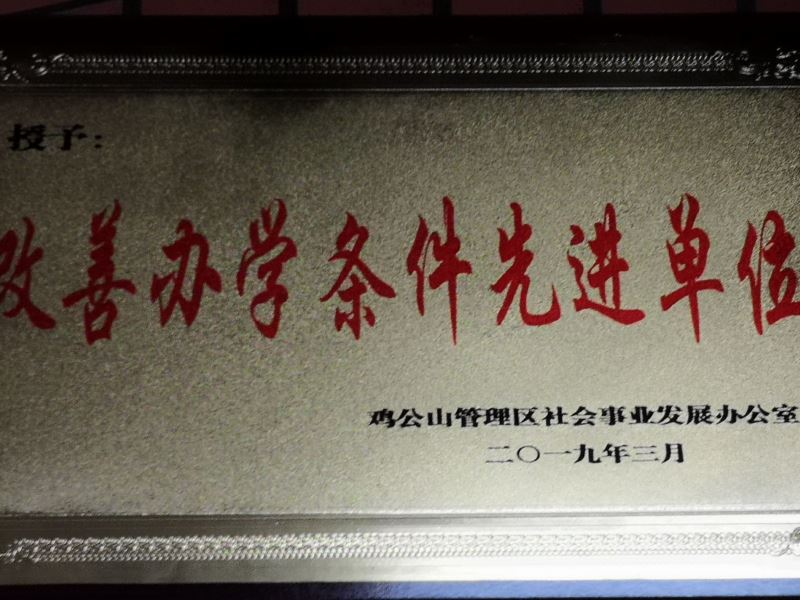 授予：
改善办学条件先进单位
鸡公山管理区社会事业发展办公室
二〇一九年三月